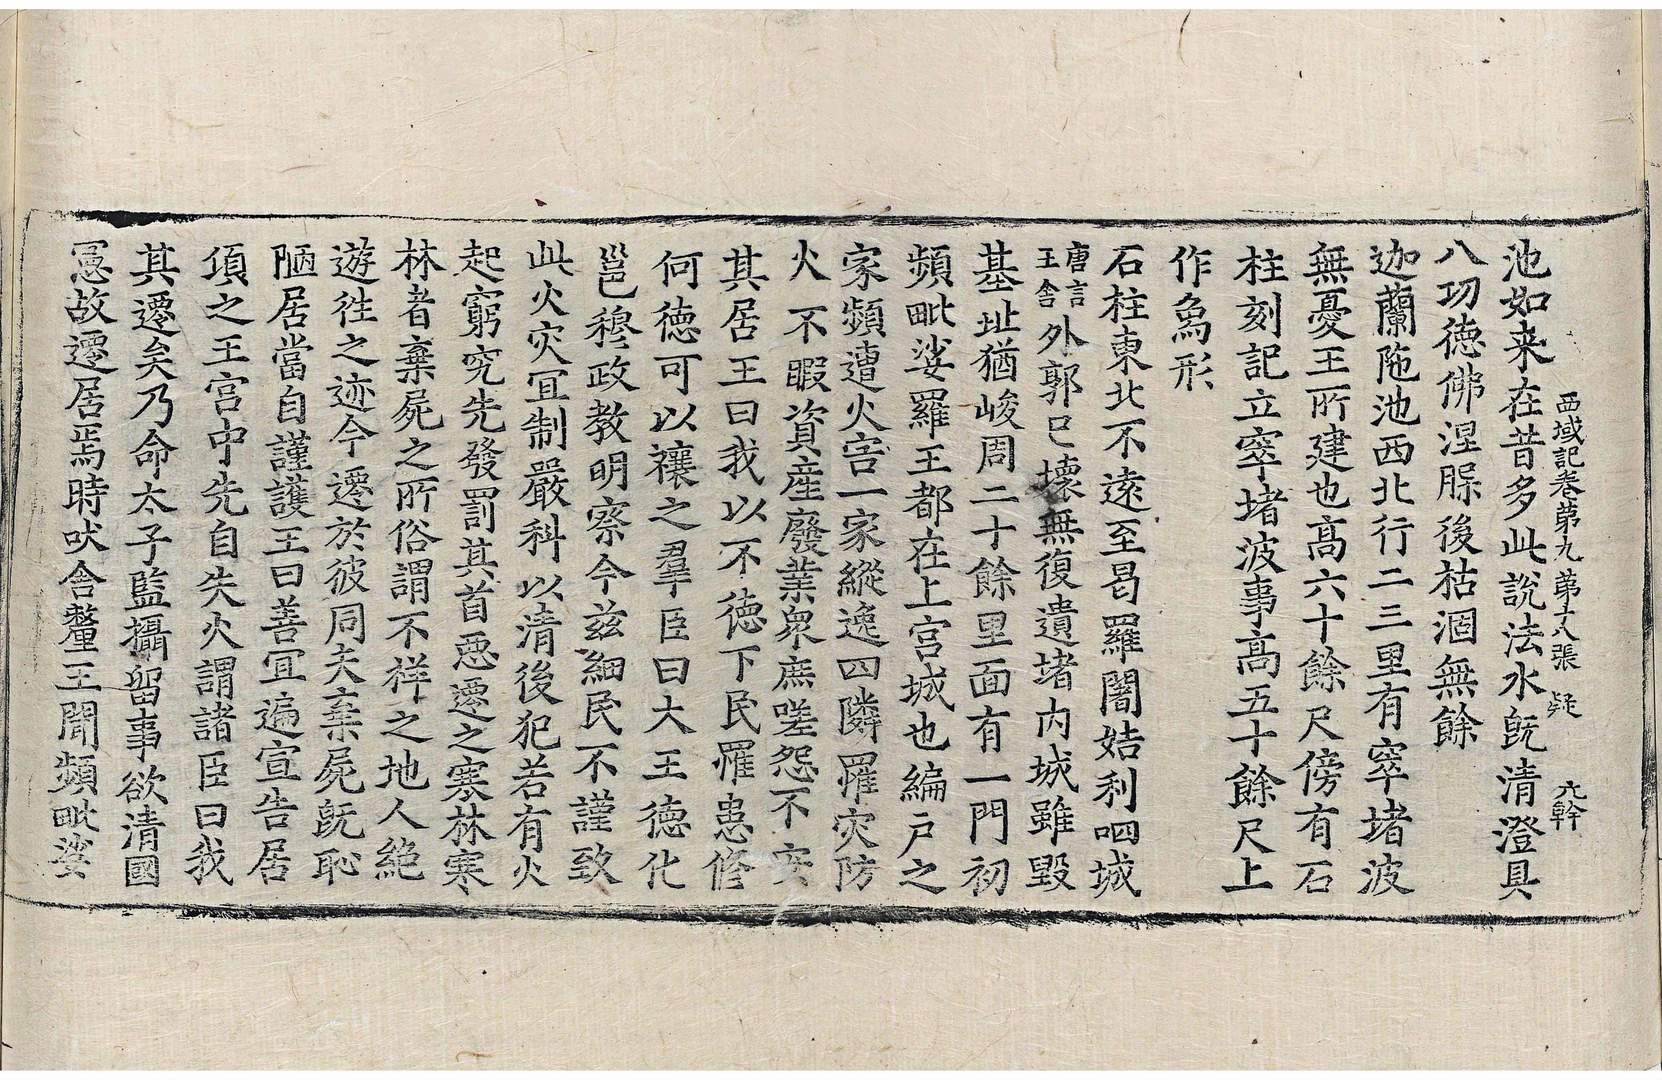 西域記卷苐九 苐十八張 疑 元幹
池如来在昔多此說法水旣清澄具
八功德佛涅𦙶後枯涸無餘
迦蘭陁池西北行二三里有窣堵波
無憂王所建也高六十餘尺傍有石
柱刻記立窣堵波事高五十餘尺上
作象形
石柱東北不遠至曷羅闍姞利呬城
唐言王舍外郭已壞無復遺堵内城雖毀
基址猶峻周二十餘里面有一門初
頻毗娑羅王都在上宮城也編戶之
家頻遭火害一家縱逸四隣罹灾防
火不暇資産廢業衆庶嗟怨不安
其居王曰我以不德下民罹患修
何德可以禳之羣臣曰大王德化
邕穆政教明察今玆細民不謹致
此火灾冝制嚴科以清後犯若有火
起窮究先發罰其首惡遷之寒林寒
林者棄屍之所俗謂不祥之地人絶
遊徃之迹今遷於彼同夫棄屍旣恥
陋居當自謹護王曰善冝遍宣告居
頃之王宮中先自失火謂諸臣曰我
其遷矣乃命太子監攝留事欲清國
憲故遷居焉時吠舍釐王聞頻毗娑